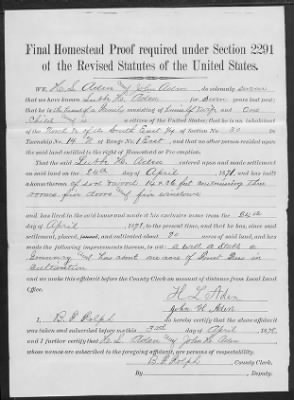 Final Homestead Proof required under Section 2291
of the Revised Statutes of the United States.
WE H. L. Aden & John Aden do solemnly swear
that we have known Lubbe H. Aden for Seven years last past;
that he is the head of a Family consisting of himself wife and one
Child & is a citizen of the United States; that he is an inhabitant
of the North ½ of the South East ¼ of Section No. 20 in
Township No. 14 N of Range No. 1 East, and that no other person resided upon the
said land entitled to the right of Homestead or Pre-emption.
That the said Lubbe H. Aden entered upon and made settlement
on said land on the 24th day of April 1871, and has built
a house thereon of sod 14 x 26 feet containing three
rooms five doors & five windows
and has lived in the said house and made it his exclusive home from the 24th
day of April 1871, to the present time, and that he has, since said
settlement, plowed, and cultivated about 20 acres of said land, and has
made the following improvements thereon, to wit: a well a Stable a
Granary & has about an acre of Fruit Trees in
Cultivation
and we make this affidavit before the County Clerk on amount of distance from Local Land
Office.
H L Aden
John H Aden
I, B. F. Rolph do hereby certify that the above affidavit
was taken and subscribed before me this 3rd day of April 1878,
and I further certify that H. L. Aden & John H. Aden
whose names are subscribed to the foregoing affidavit, are persons of respectability.
B. F. Rolph, County Clerk,
By , Deputy.